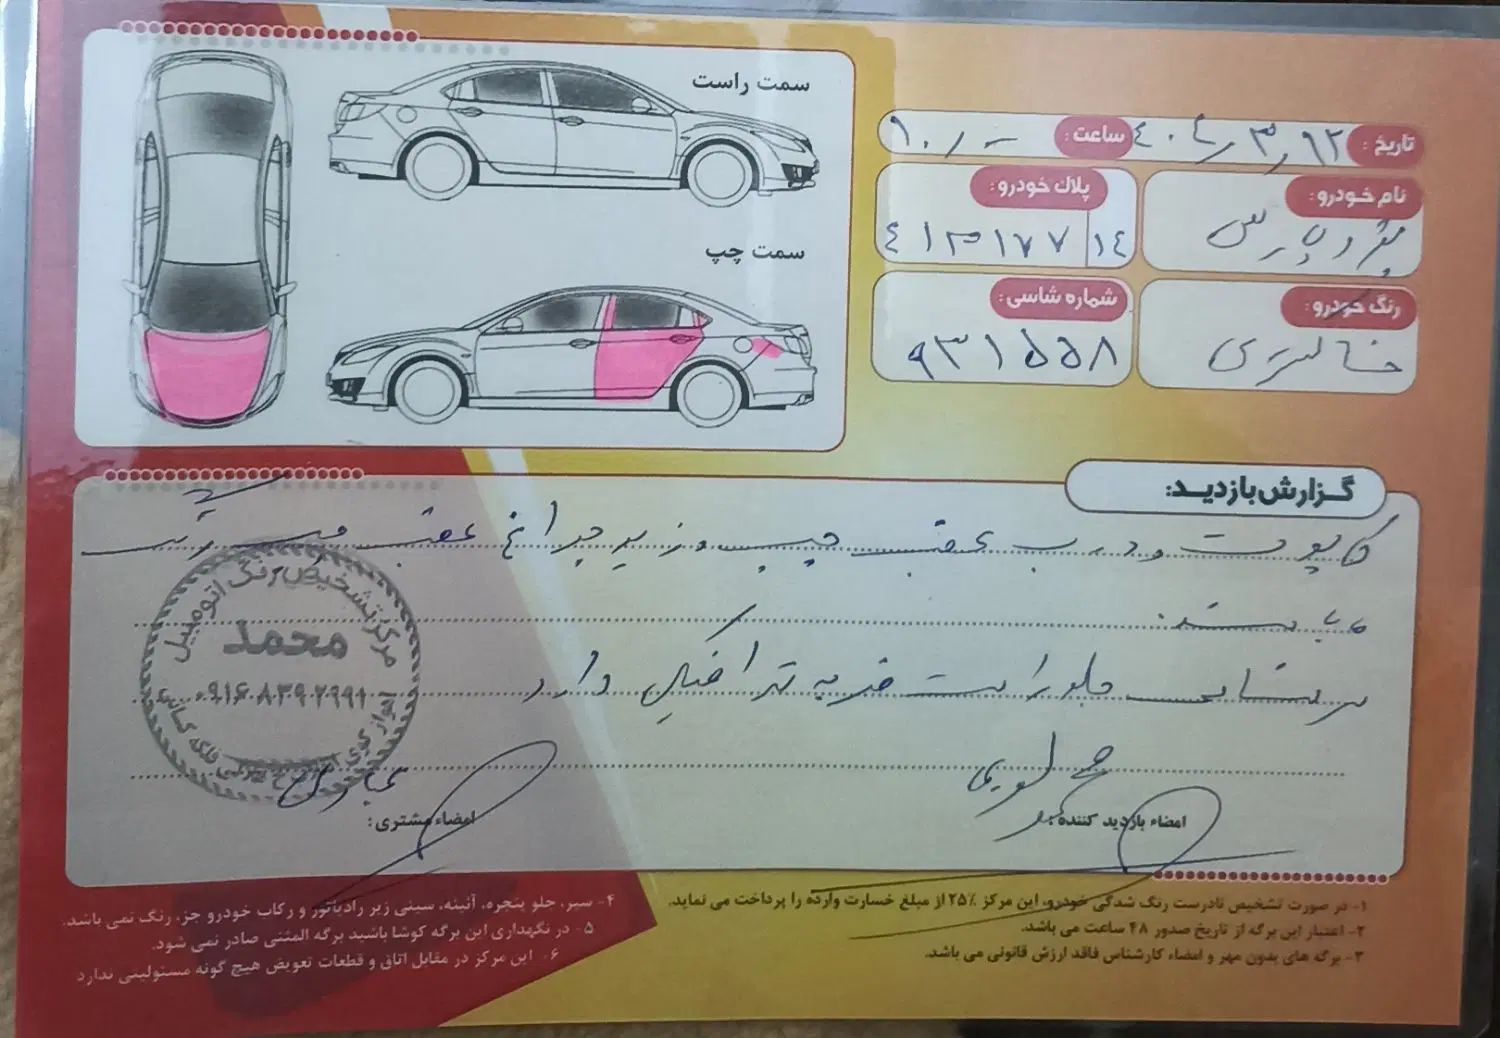 سمت راست
سمت چپ
تاریخ: ۴۰۴/۳/۱۲ ساعت: ۱۰/۰۰
نام خودرو: پژو پارس
پلاک خودرو: ۱۴ ۷۷
رنگ خودرو: خاکستری
شماره شاسی: ۹۳۱۵۵۸
گزارش بازدید:
کاپوت و درب عقب چپ و زیر چراغ عقب چپ رنگ
میباشد.
سرشاسی جلو راست ضربه ترافیکی دارد
مرکز تشخیص رنگ اتومبیل
محمد
۰۹۱۶۰۸۳۹۲۹۹۱
امضاء بازدید کننده:
امضاء مشتری:
۱- در صورت تشخیص نادرست رنگ شدگی خودرو، این مرکز ۲۵٪ از مبلغ خسارت وارده را پرداخت می نماید.
۲- اعتبار این برگه از تاریخ صدور ۴۸ ساعت می باشد.
۳- برگه های بدون مهر و امضاء کارشناس فاقد ارزش قانونی می باشد.
۴- سپر، جلو پنجره، آئینه، سینی زیر رادیاتور و رکاب خودرو جزء رنگ نمی باشد.
۵- در نگهداری این برگه کوشا باشید برگه المثنی صادر نمی شود.
۶- این مرکز در مقابل اتاق و قطعات تعویض هیچ گونه مسئولیتی ندارد